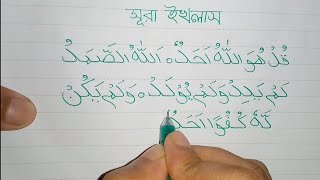 সূরা ইখলাস
قُلْ هُوَ اللّٰهُ اَحَدٌ ۚ اَللّٰهُ الصَّمَدُ
لَمْ يَلِدْ وَلَمْ يُوْلَدْ ۙ وَلَمْ يَكُنْ
لَّهٗ كُفُوًا اَحَدٌ